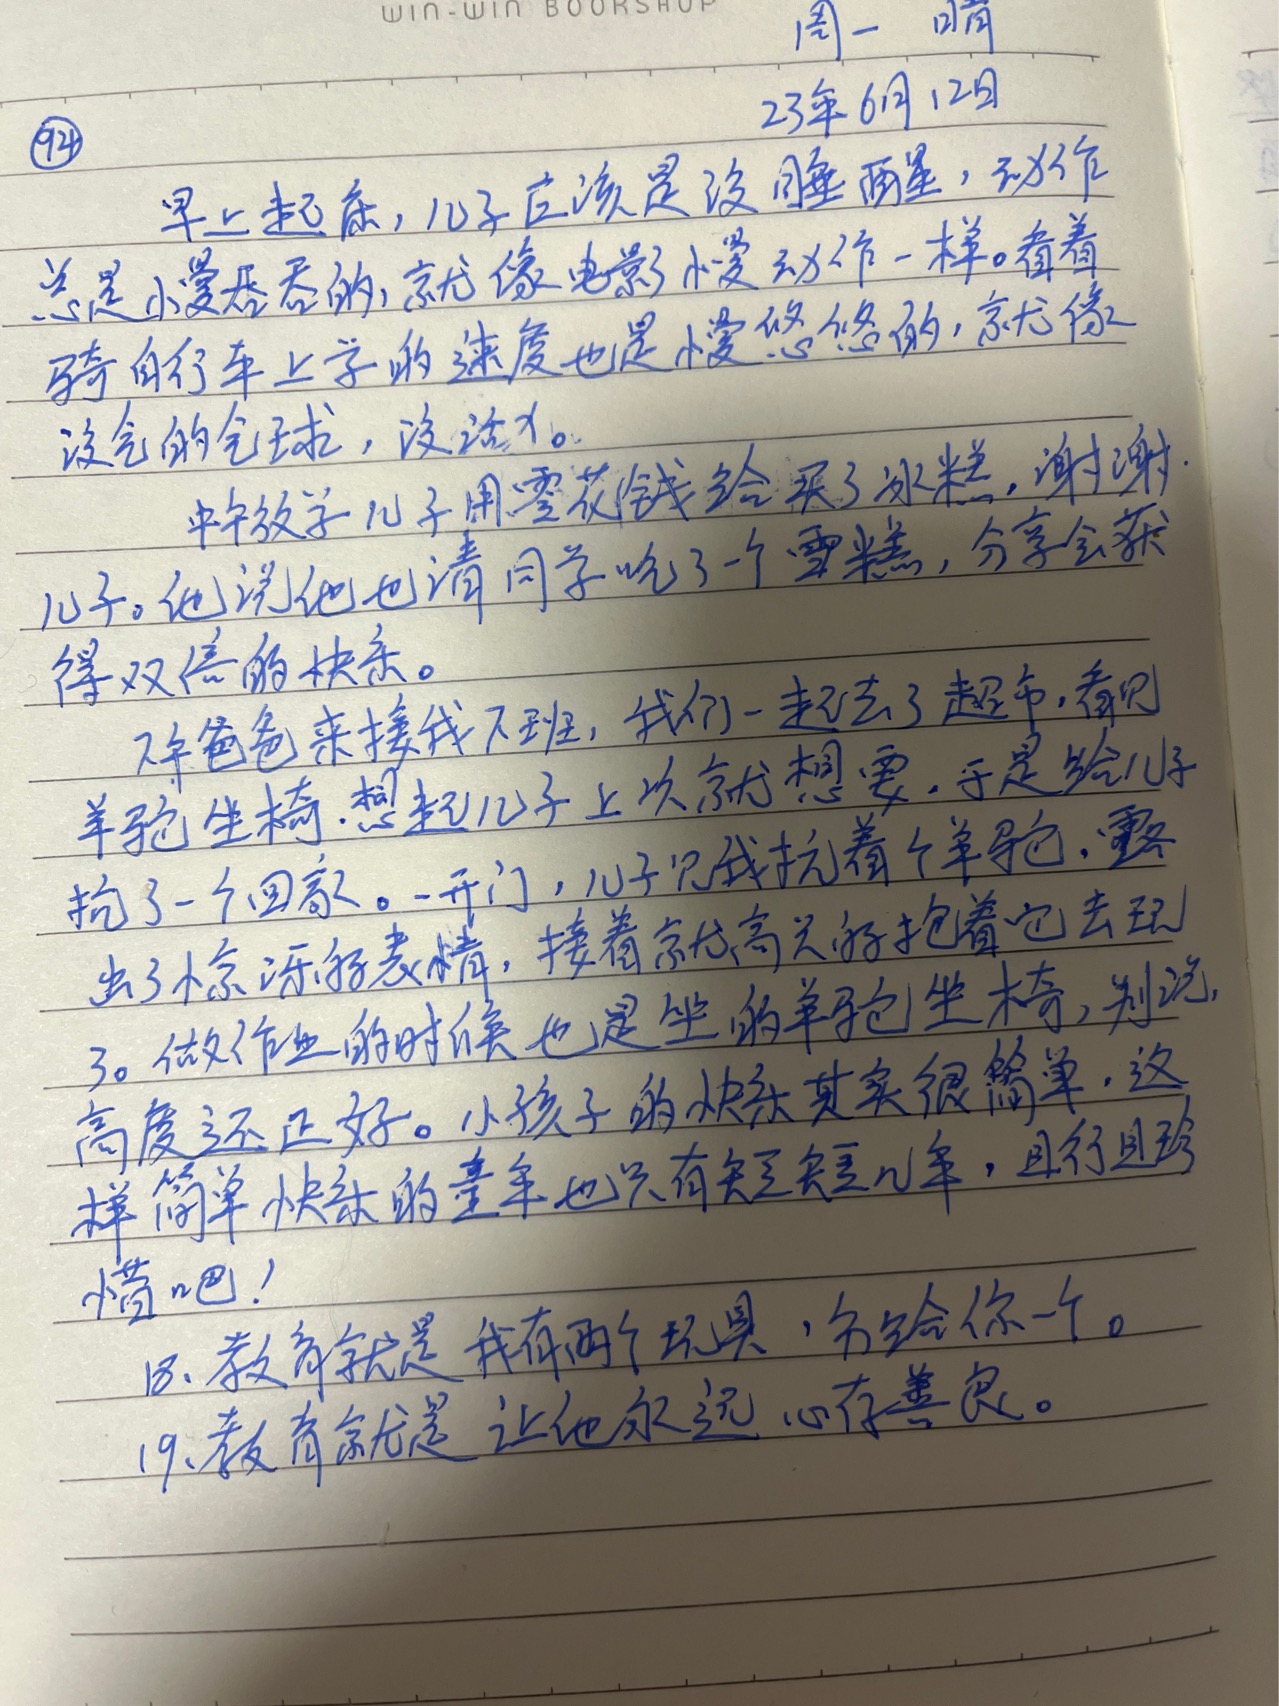 WIN-WIN BOOKSHOP
周一 晴
23年6月12日
94
早上起床，儿子应该是没睡醒，动作
总是慢吞吞的，就像电影慢动作一样。看着
骑自行车上学的速度也是慢悠悠的，就像
没气的气球，没活力。
中午放学儿子用零花钱给买了冰糕，谢谢
儿子。他说他也请同学吃了一个雪糕，分享会获
得双倍的快乐。
下午爸爸来接我下班，我们一起去了超市，看见
羊驼坐椅，想起儿子上次就想要，于是给儿子
抱了一个回家。一开门，儿子见我抗着个羊驼，露
出了惊讶的表情，接着就高兴的抱着它去玩
了。做作业的时候也是坐的羊驼坐椅，别说，
高度还正好。小孩子的快乐其实很简单，这
样简单快乐的童年也只有短短几年，且行且珍
惜吧！
18、教育就是我有两个玩具，分给你一个。
19、教育就是让他永远心存善良。